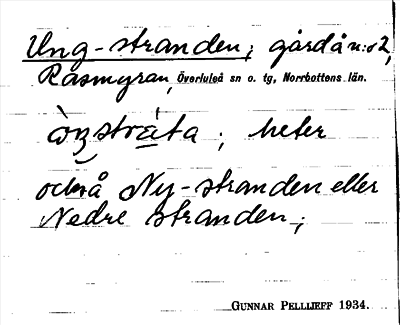 Ung-stranden; gård å n:o 2,
Råsmyran, Överluleå sn o. tg, Norrbottens län.
òŋstrá̱ta ; heter
också Ny-stranden eller
Nedre stranden;
GUNNAR PELLIJEFF 1934.